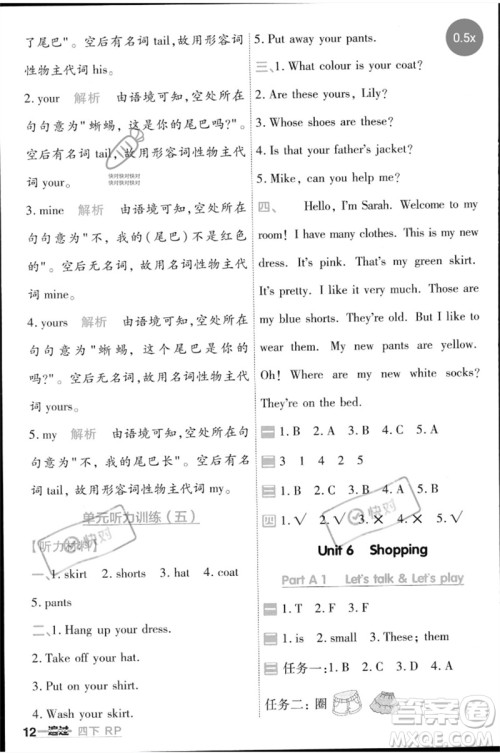 了尾巴"。空后有名词 tail，故用形容词
性物主代词 his。
2. your 解析 由语境可知，空处所在
句句意为"蜥蜴，这是你的尾巴吗?"
空后有名词 tail，故用形容词性物主代
词 your。
3. mine 解析 由语境可知，空处所在
句句意为"不，我的(尾巴)不是红色
的"。空后无名词，故用名词性物主代
词 mine。
4. yours 解析 由语境可知，空处所在
句句意为"蜥蜴，这个尾巴是你
的吗?"。空后无名词，故用名词性物主代
词 yours。
5. my 解析 由语境可知，空处所在句
句意为"不，我的尾巴长"。空后有名词
tail，故用形容词性物主代词 my。
单元听力训练(五)
【听力材料】
一、1. skirt 2. shorts 3. hat 4. coat
5. pants
二、1. Hang up your dress.
2. Take off your hat.
3. Put on your shirt.
4. Wash your skirt.
12 一遍过 四下 RP
5. Put away your pants.
三、1. What colour is your coat?
2. Are these yours, Lily?
3. Whose shoes are these?
4. Is that your father's jacket?
5. Mike, can you help me?
四、 Hello, I'm Sarah. Welcome to my
room! I have many clothes. My new dress
is here. It's pink. That's my green skirt.
It's pretty. I like it very much. Those are
my blue shorts. They are nice. I like to
wear them. My new pants are yellow.
Oh! Where are my new white socks?
They're on the bed.
一 1. B 2. A 3. B 4. C 5. A
二 3 1 4 2 5
三 1. A 2. B 3. A 4. C 5. A
四 1. √ 2. √ 3. × 4. × 5. √
Unit 6 Shopping
Part A 1 Let's talk & Let's play
一 1. T 2. F 3. F
二 1. is 2. small 3. These; them
三 任务一：1. B 2. A
任务二：圈
0.5x
快对
快对快对快对
快对快对快对